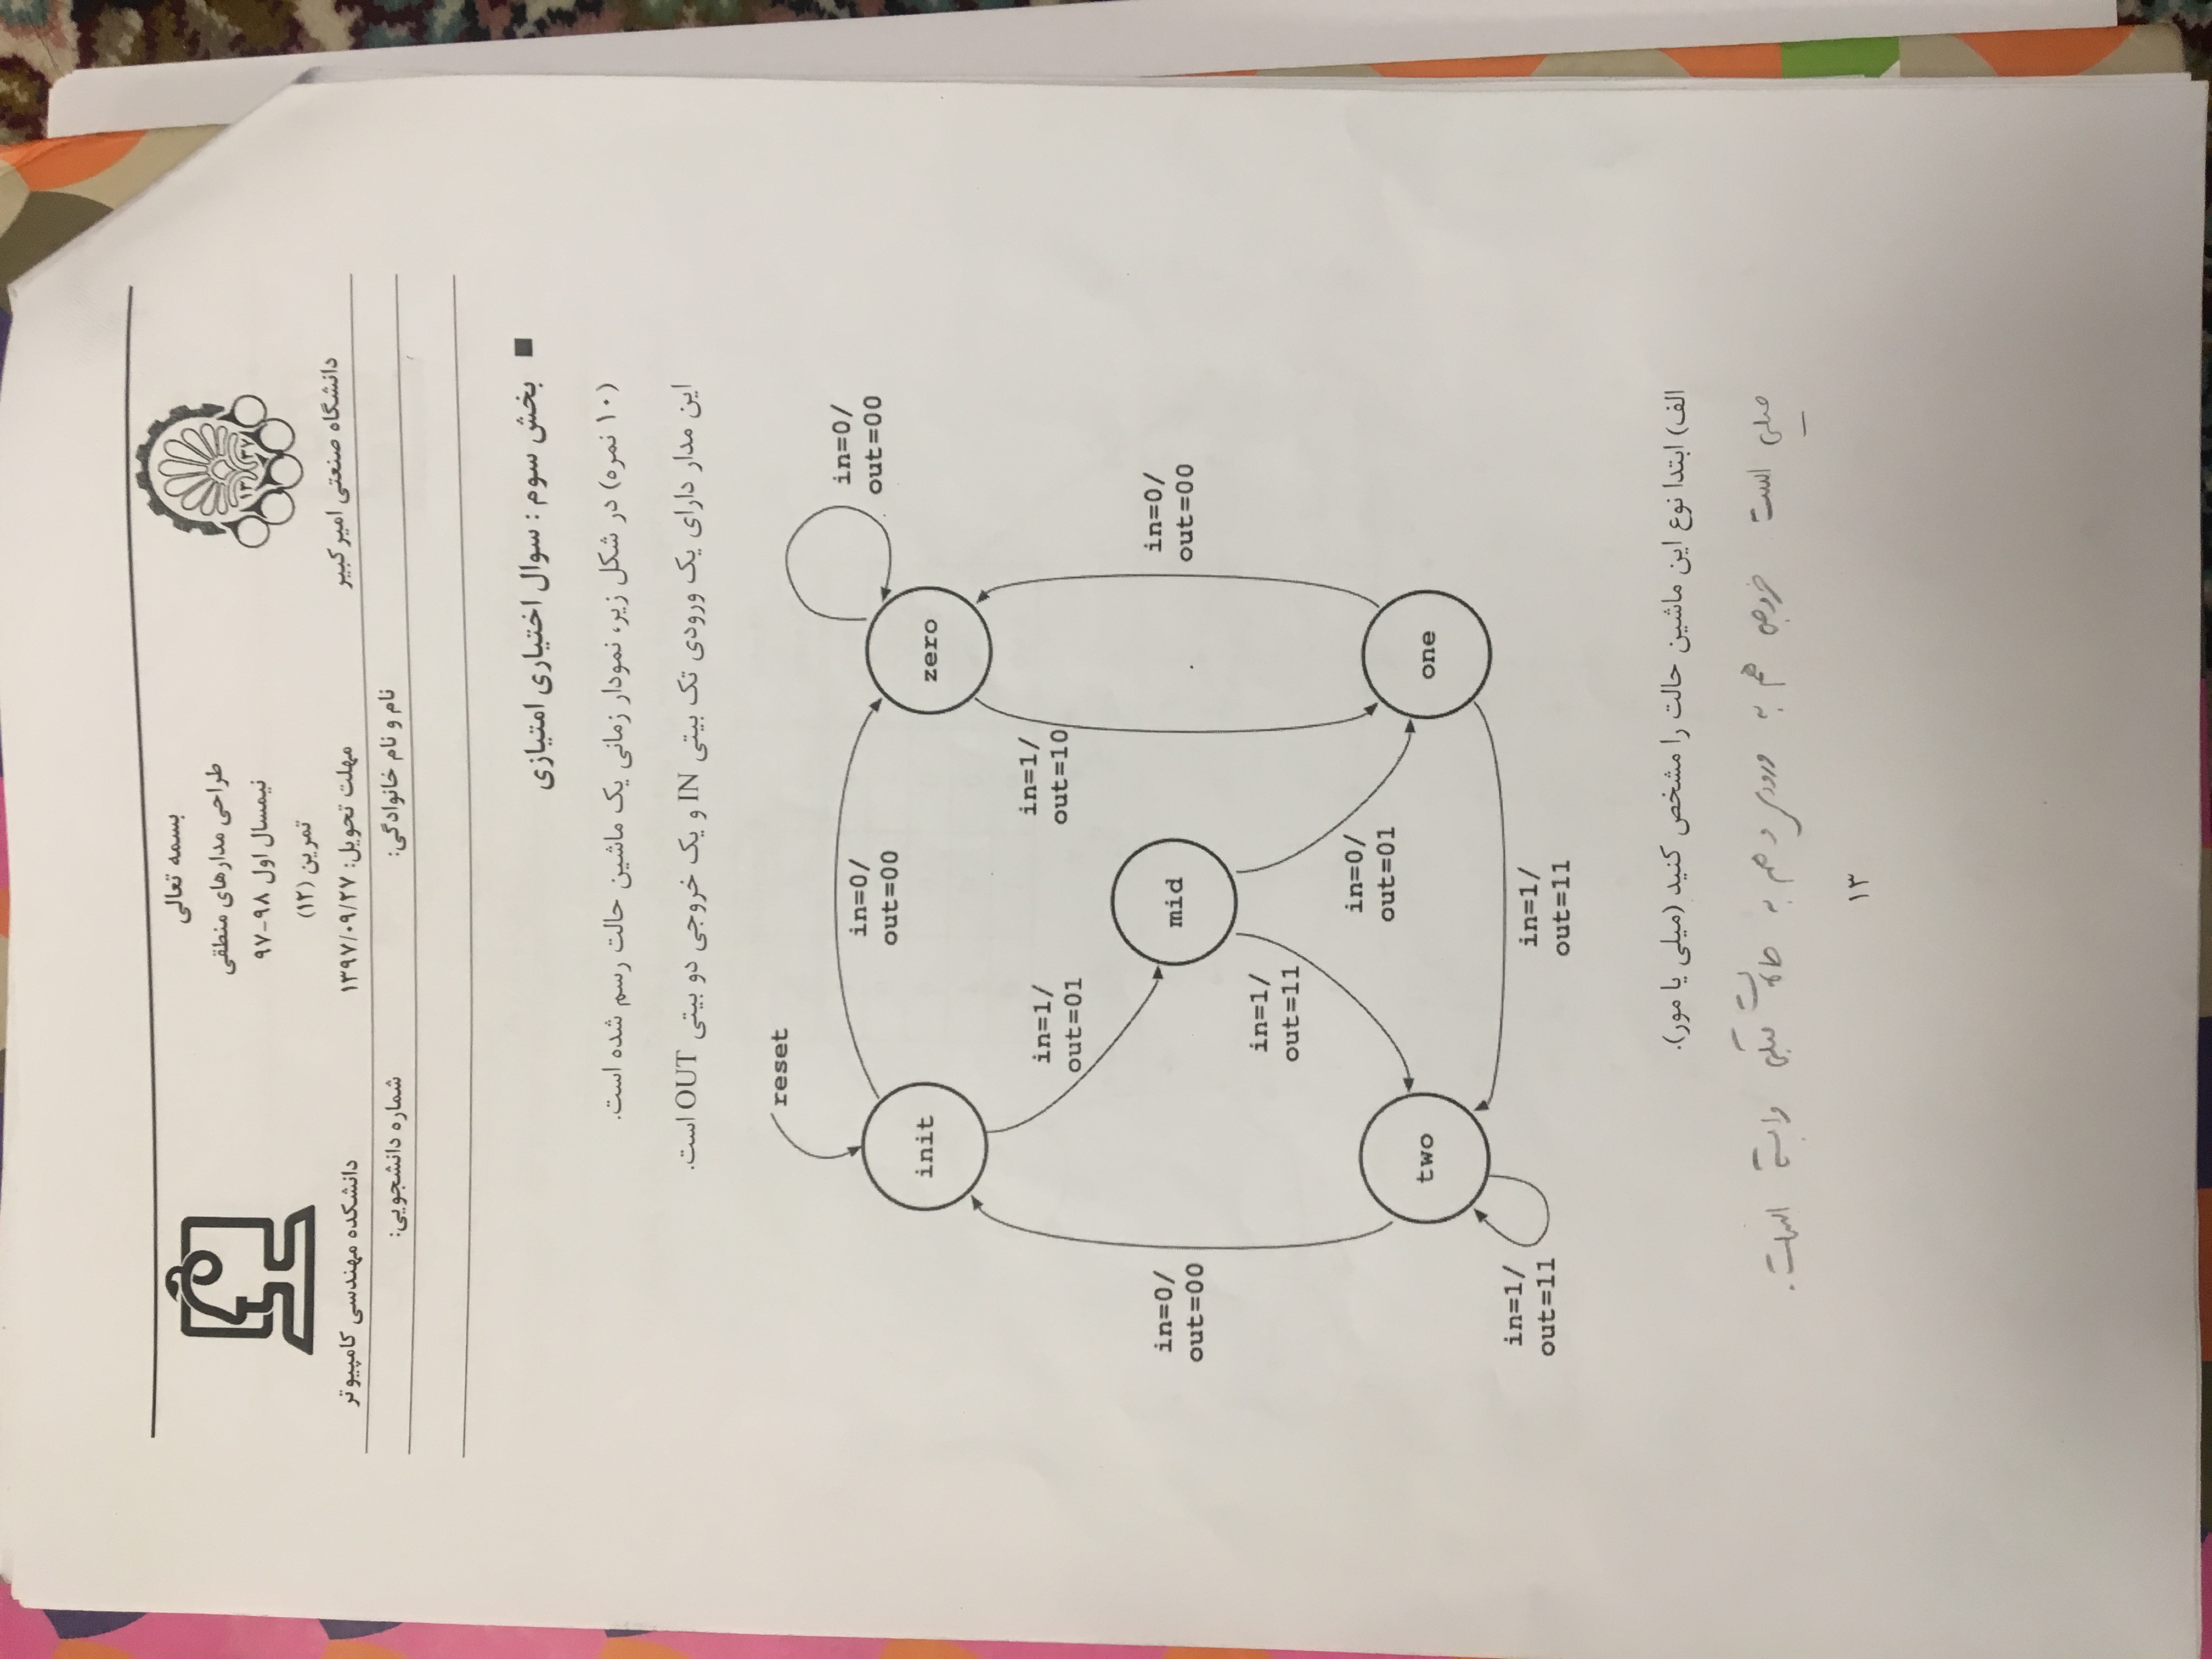 بسمه تعالی
طراحی مدارهای منطقی
نیمسال اول ۹۸-۹۷
تمرین (۱۲)
۱۳ ۳۷
دانشگاه صنعتی امیرکبیر
مهلت تحویل: ۱۳۹۷/۰۹/۲۷
دانشکده مهندسی کامپیوتر
نام و نام خانوادگی:
شماره دانشجویی:
بخش سوم : سوال اختیاری امتیازی
(۱۰ نمره) در شکل زیر، نمودار زمانی یک ماشین حالت رسم شده است.
این مدار دارای یک ورودی تک بیتی IN و یک خروجی دو بیتی OUT است.
reset
in=0/
out=00
in=0/
out=00
init
zero
in=1/
out=01
in=1/
out=10
mid
in=0/
out=00
in=0/
out=00
in=1/
out=11
in=0/
out=01
two
one
in=1/
out=11
in=1/
out=11
الف) ابتدا نوع این ماشین حالت را مشخص کنید (میلی یا مور).
میلی است خروجی هم به ورودی و هم به حالات قبلی وابسته است.
۱۳